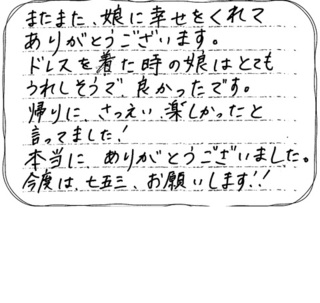 またまた、娘に幸せをくれて
ありがとうございます。
ドレスを着た時の娘はとても
うれしそうで、良かったです。
帰りに、さつえい、楽しかったと
言ってました!
本当に ありがとうございました。
今度は、七五三、お願いします!!